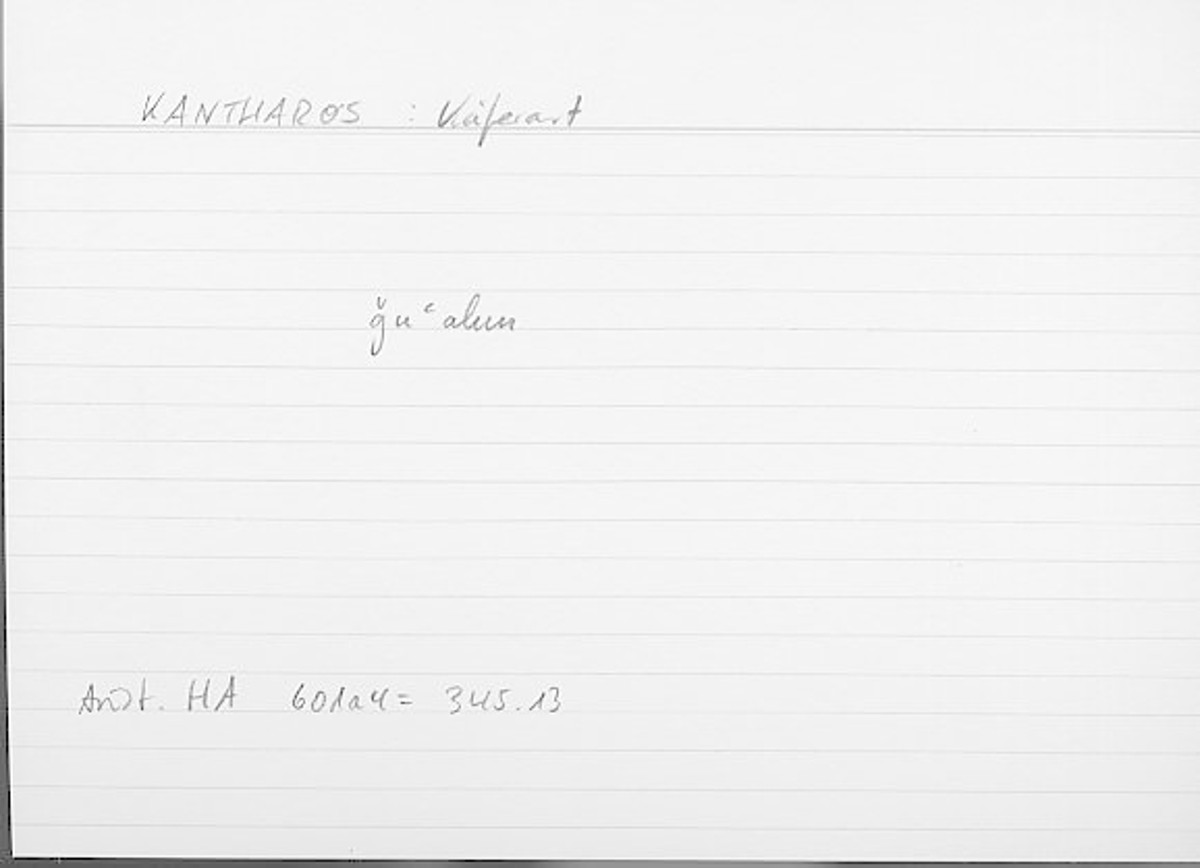 KANTHAROS : Käferart
ǧuʿalun
Arist. HA 601a4 = 345.13